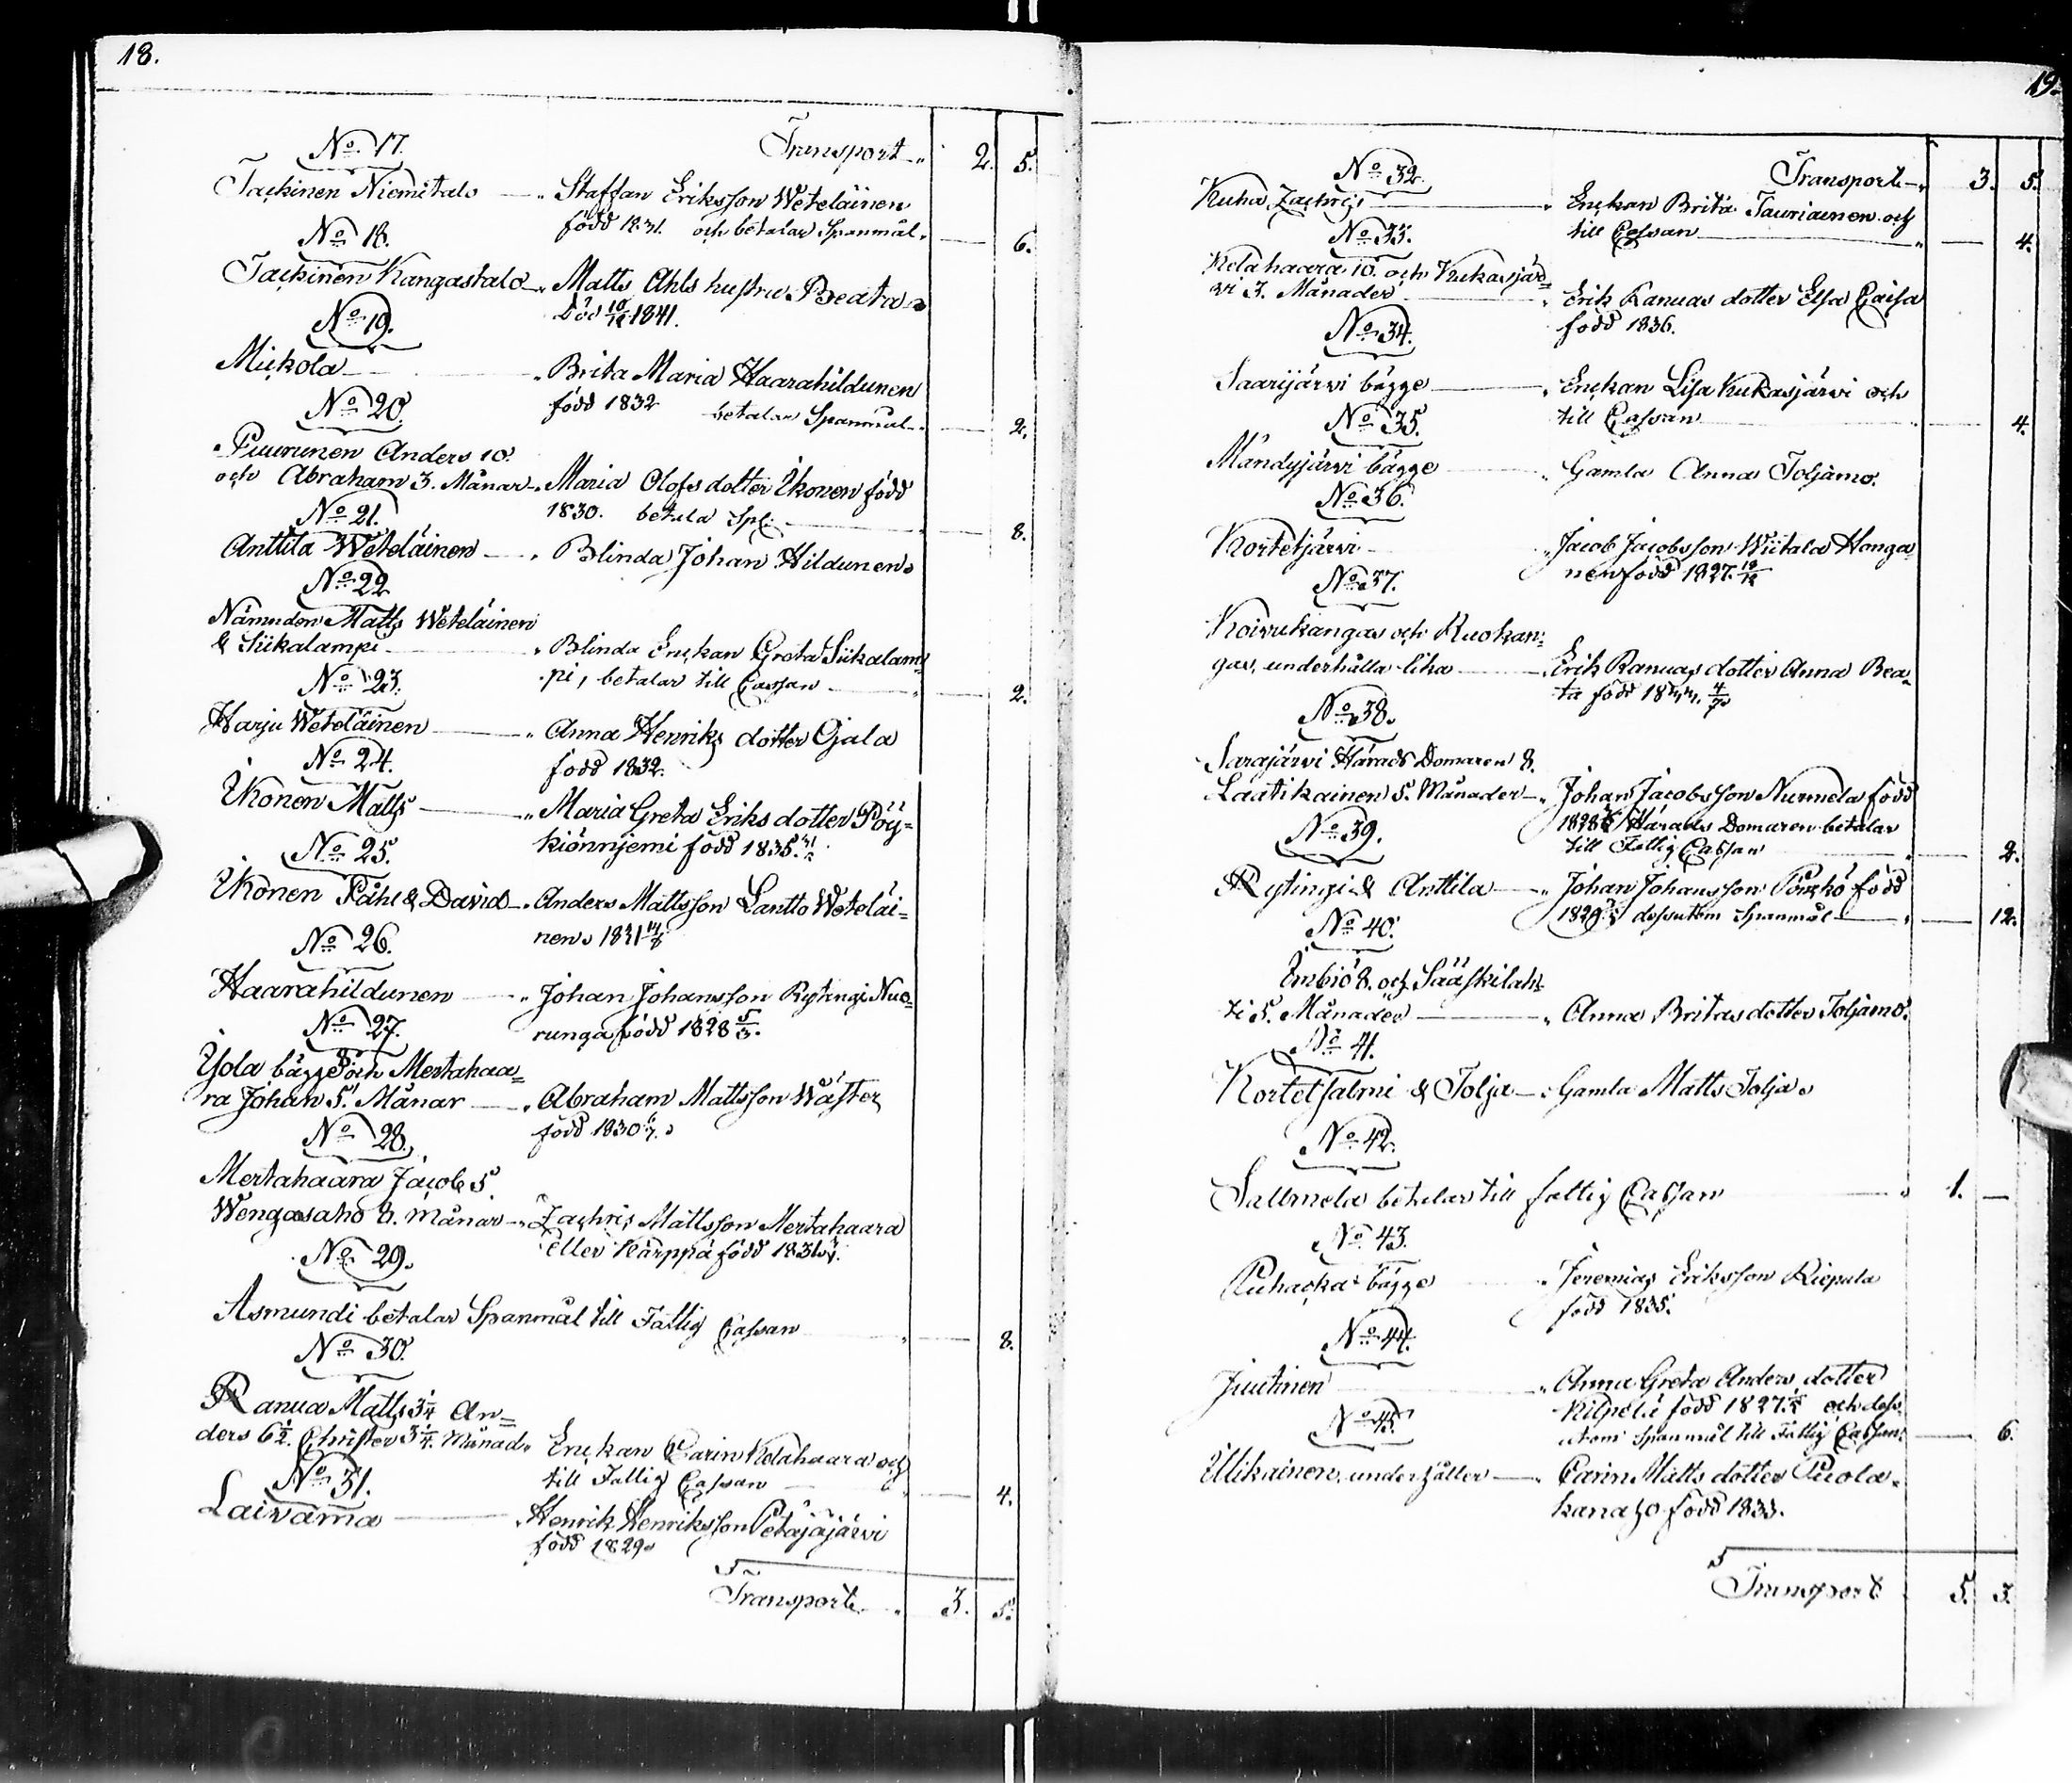 18.
No 17. Transport 2. 5.
Tackinen Niemitalo Staffan Eriksson Weteläinen
född 1831. och betalar Spanmål 6.
No 18.
Tackinen Kangastalo Matts Ahls hustru Beata
död 10/12 1841.
No 19.
Mickola Brita Maria Haarahildunen
född 1832 betalar Spanmål 2.
No 20.
Puurunen Anders 10.
och Abraham 3. Månar Maria Olofs dotter Ikonen född
1830. betala Spl. 8.
No 21.
Anttila Weteläinen Blinda Johan Hildunen
No 22
Nämnden Matts Weteläinen
& Siikalampi Blinda Enckan Greta Siikalam=
pi, betalar till Cassan 2.
No 23.
Harju Weteläinen Anna Henriks dotter Ojala
född 1832.
No 24.
Ikonen Matts Maria Greta Eriks dotter Pöy=
kiönnjemi född 1835.
No 25.
Ikonen Påhl & David Anders Mattsson Lantto Weteläi=
nen 1831
No 26.
Haarahildunen Johan Johansson Rytingi Nuo=
runga född 1828 5/3.
No 27.
Yola bägge 8. och Mertahaa=
ra Johan 5. Månar Abraham Mattsson Wäster
född 1830
No 28.
Mertahaara Jacob 5.
Wengasaho 8. Månar Zachris Mattsson Mertahaara
eller Kärppä född 1831
No 29.
Asmundi betalar Spanmål till Fattig Cassan 8.
No 30.
Ranua Matts 3 1/4 An=
ders 6 1/2. Christer 3 1/4. Månad Enckan Carin Kelahaara och
till Fattig Cassan 4.
No 31.
Laivama Henrik Henriksson Petäjäjärvi
född 1829
Transport 3. 5.
19.
No 32. Transport 3. 5.
Kuha Zachris Enckan Brita Tauriainen och
till Cassan 4.
No 33.
Kelahaara 10. och Kukasjär=
vi 3. Månader Erik Ranuas dotter Elsa Caisa
född 1836.
No 34.
Saarijärvi bägge Enckan Lisa Kukasjärvi och
till Cassan 4.
No 35.
Mändyjärvi bägge Gamla Anna Toljamo.
No 36.
Kortetjärvi Jacob Jacobsson Wiitala Honga
nen född 1827.
No 37.
Koivukangas och Kuokan=
gas, underhålla lika Erik Ranuas dotter Anna Bea
ta född 1844. 4/7
No 38.
Sarajärvi Härads Domaren 8.
Laatikainen 5. Månader Johan Jacobsson Nurmela född
1828 Härads Domaren betalar
till Fattig Cassan 2.
No 39.
Rytingi & Anttila Johan Johansson född
1829 dessutom Spanmål 12.
No 40.
Imbiö 8. och Sääskilah=
ti 5. Månader Anna Britas dotter Toljamo.
No 41.
Kortetsalmi & Tolja Gamla Matts Tolja
No 42.
Sallmela betalar till fattig Cassan 1.
No 43.
Puhacka bägge Jeremias Eriksson Riepula
född 1835.
No 44.
Juutinen Anna Greta Anders dotter
Kilpelä född 1827 och dess
utom Spanmål till Fattig Cassan 6.
No 45.
Ulikainen underhåller Carin Matts dotter Puola
kanaho född 1833.
Transport 5. 3.